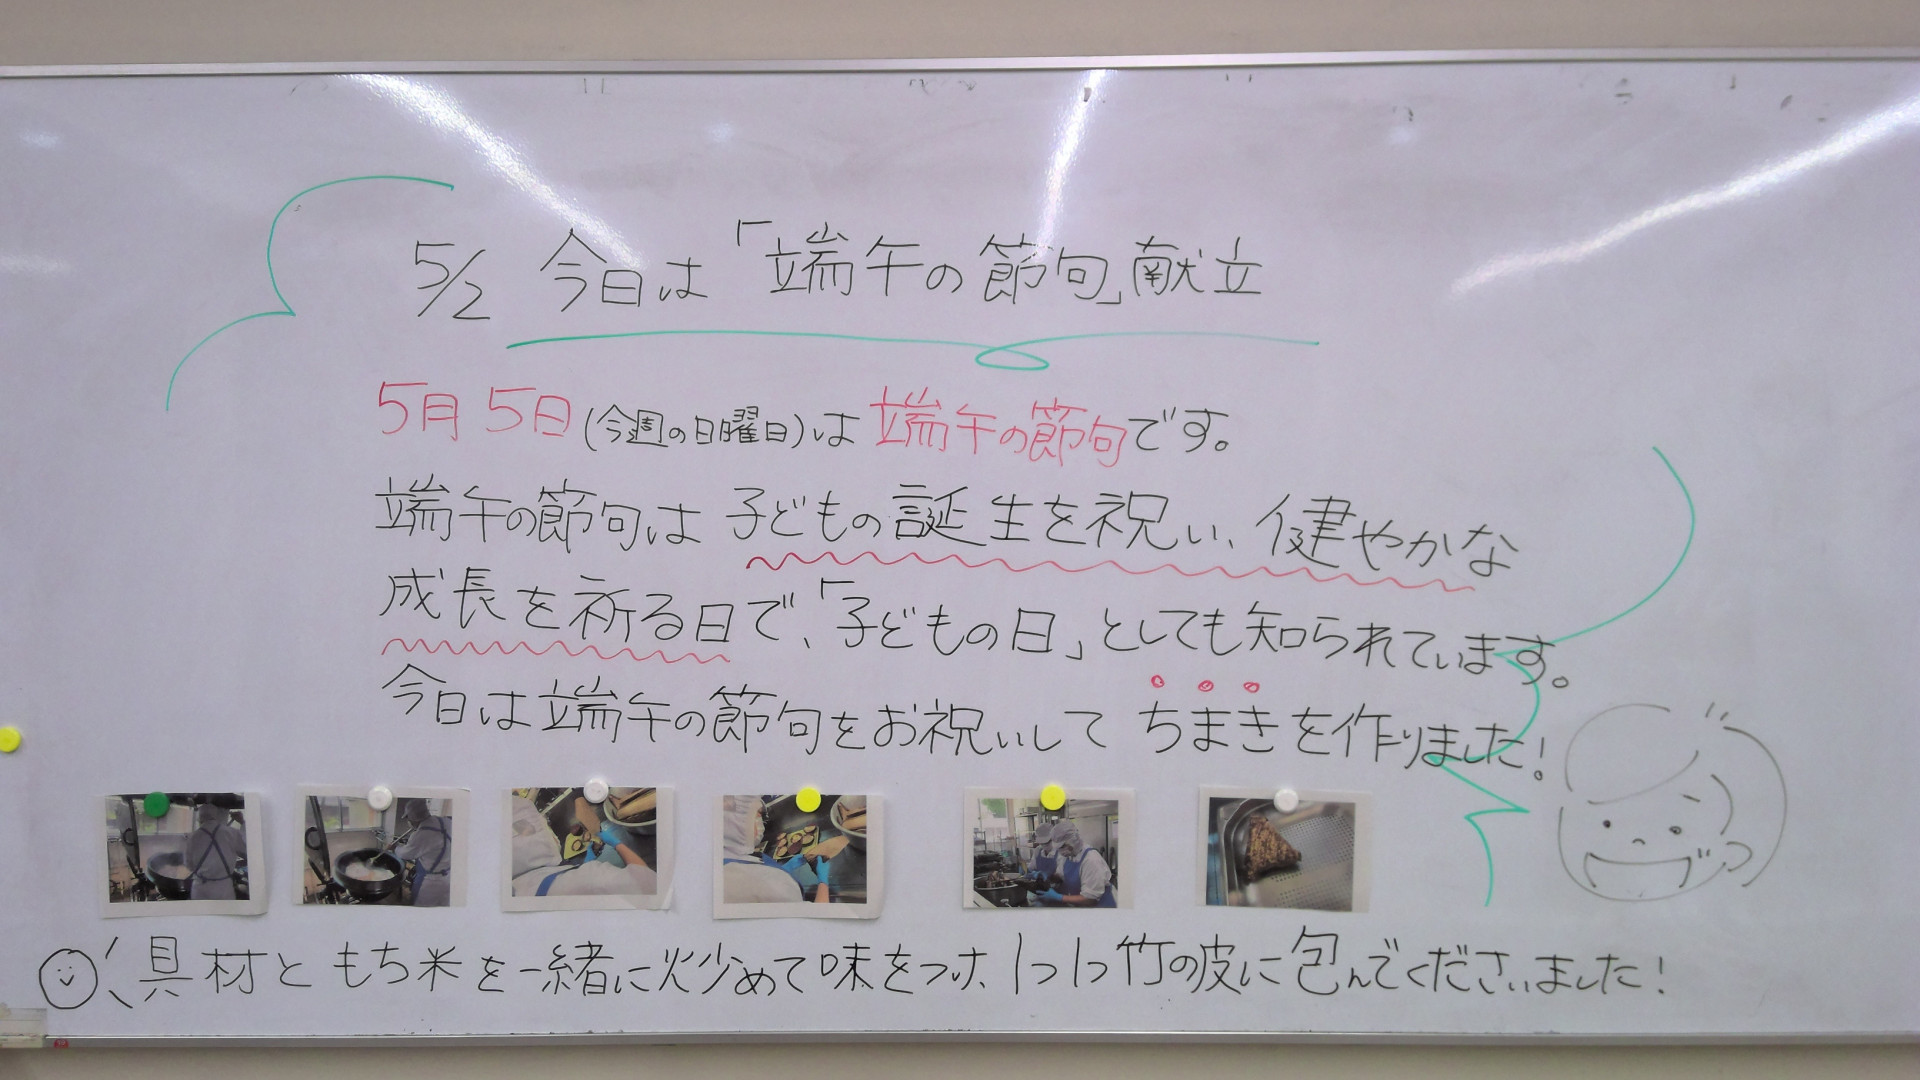 5/2 今日は「端午の節句」献立
5月5日(今週の日曜日)は端午の節句です。
端午の節句は子どもの誕生を祝い、健やかな
成長を祈る日で、「子どもの日」としても知られています。
今日は端午の節句をお祝いしてちまきを作りました!
具材ともち米を一緒に炒めて味をつけ、1つ1つ竹の皮に包んでくださいました!